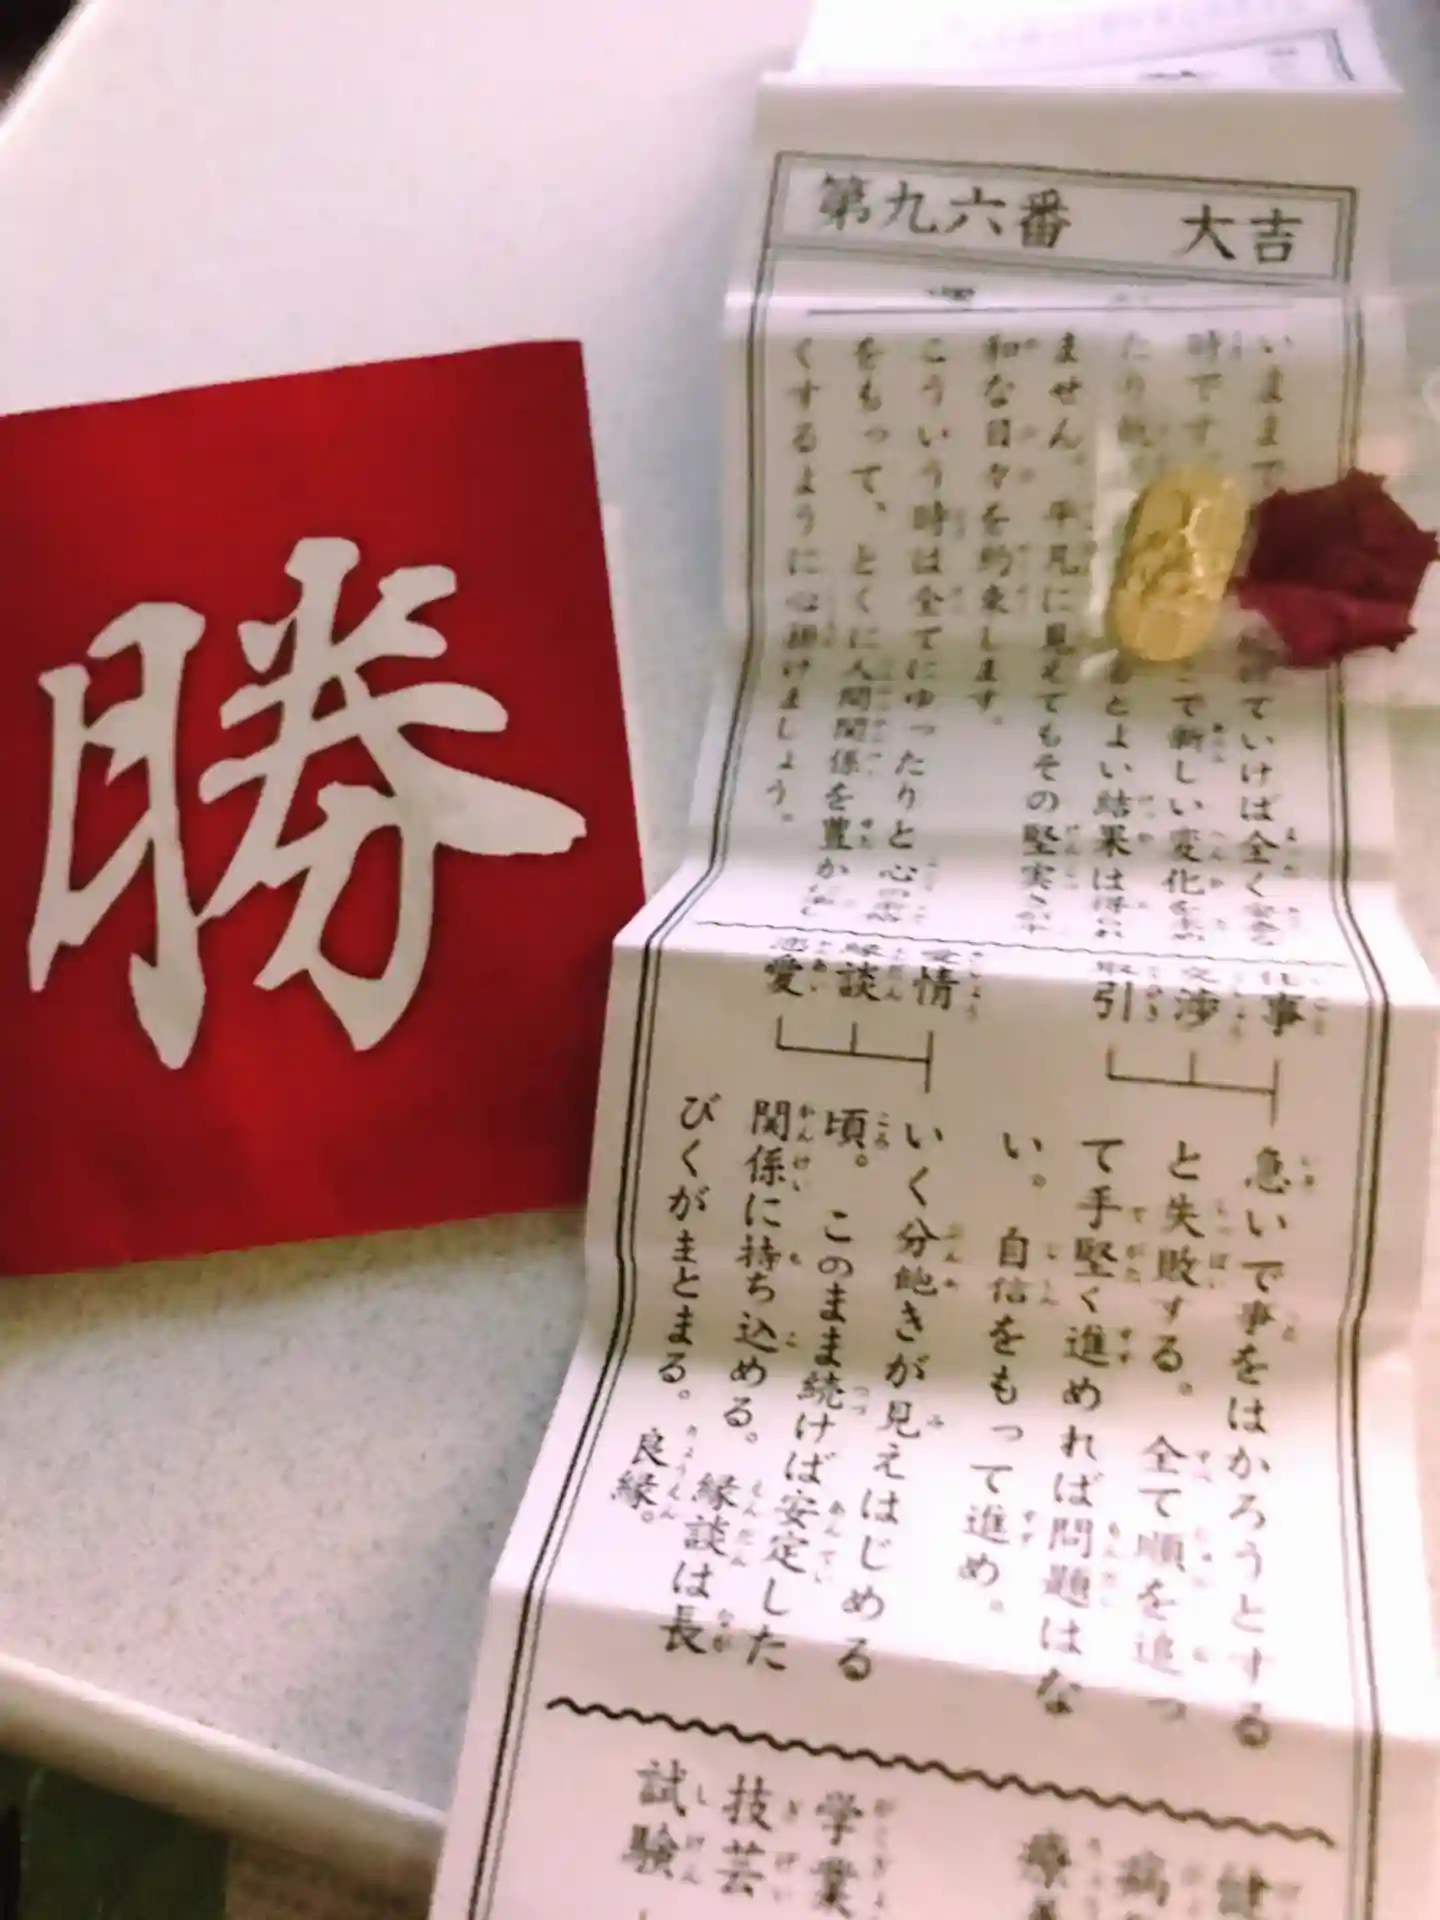 勝
第九六番 大吉
いままで
ていけば全く
時です
で新しい変化を
たり
とよい結果は得られ
ません。平凡に見えてもその堅実さが平
和な日々を約束します。
こういう時は全てにゆったりと心の
をもって、とくに人間関係を豊か
くするように心掛けましょう。
仕事
交渉
取引
急いで事をはかろうとする
と失敗する。全て順を追っ
て手堅く進めれば問題はな
い。自信をもって進め。
愛情
縁談
恋愛
いく分飽きが見えはじめる
頃。このまま続けば安定した
関係に持ち込める。縁談は長
びくがまとまる。良縁。
健
病
療
学業
技芸
試験